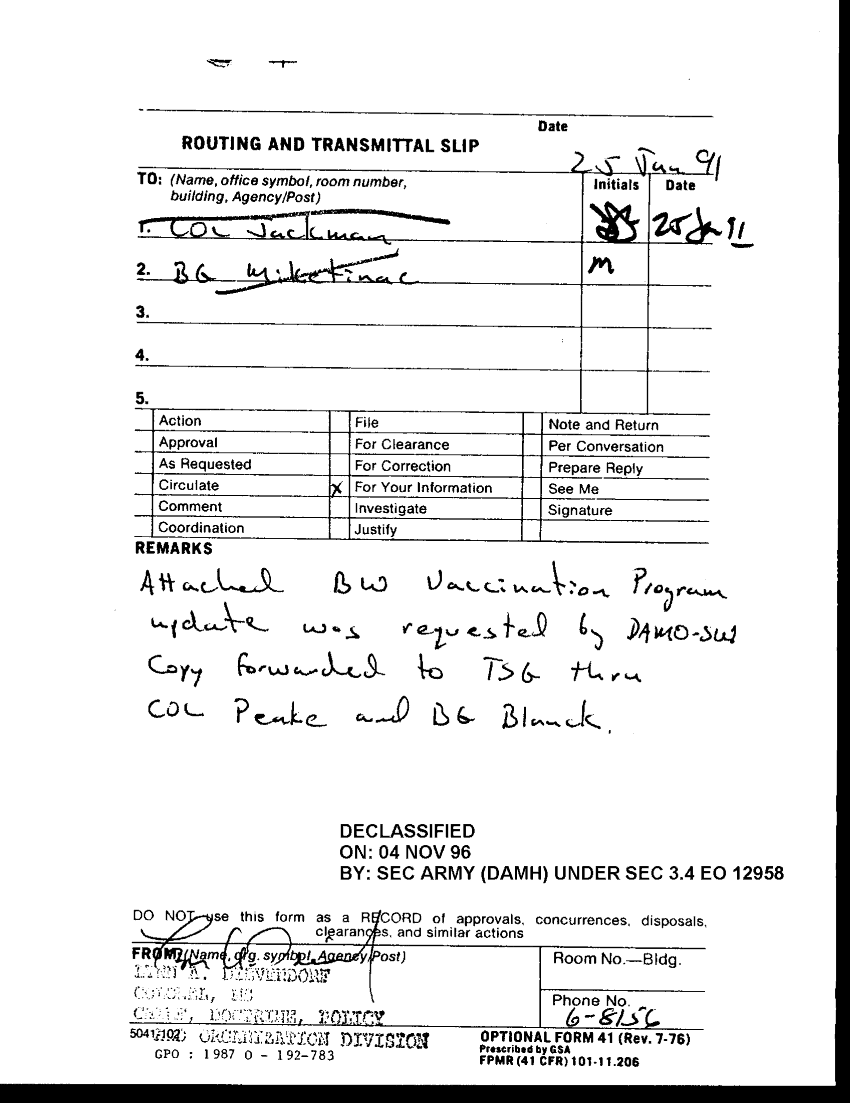 Date
ROUTING AND TRANSMITTAL SLIP
25 Jan 91
TO: (Name, office symbol, room number,
building, Agency/Post)
Initials Date
1. COL Jackman 25 Jan 91
2. BG Miketinac m
3.
4.
5.
Action File Note and Return
Approval For Clearance Per Conversation
As Requested For Correction Prepare Reply
Circulate X For Your Information See Me
Comment Investigate Signature
Coordination Justify
REMARKS
Attached BW Vaccination Program
update was requested by DAMO-SWS
Copy forwarded to TSG thru
COL Peake and BG Blanck.
DECLASSIFIED
ON: 04 NOV 96
BY: SEC ARMY (DAMH) UNDER SEC 3.4 EO 12958
DO NOT use this form as a RECORD of approvals, concurrences, disposals,
clearances, and similar actions
FROM: (Name, org. symbol, Agency/Post) Room No.—Bldg.
COLONEL, MS
Phone No.
CHIEF, DOCTRINE, POLICY 6-8156
5041-102 ORGANIZATION DIVISION OPTIONAL FORM 41 (Rev. 7-76)
Prescribed by GSA
GPO : 1987 O - 192-783 FPMR (41 CFR) 101-11.206